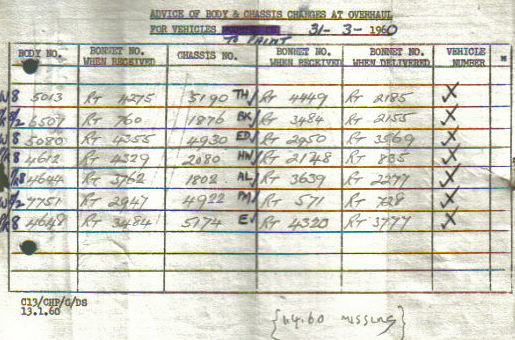 ADVICE OF BODY & CHASSIS CHANGES AT OVERHAUL
FOR VEHICLES 31- 3- 1960
TO PAINT
BODY NO. BONNET NO. WHEN RECEIVED CHASSIS NO. BONNET NO. WHEN RECEIVED BONNET NO. WHEN DELIVERED VEHICLE NUMBER
8 5013 RT 4275 5190 TH RT 4449 RT 2185 X
6507 RT 760 1876 BK RT 3484 RT 2155 X
8 5080 RT 4355 4930 ED RT 2950 RT 3569 X
8 4612 RT 4329 2080 HW RT 2148 RT 835 X
8 4644 RT 3762 1802 AL RT 3639 RT 2277 X
7751 RT 2947 4922 PM RT 571 RT 728 X
8 4648 RT 3484 5174 E RT 4320 RT 3777 X
C13/CHP/G/DS
13.1.60
{1.4.60 MISSING}